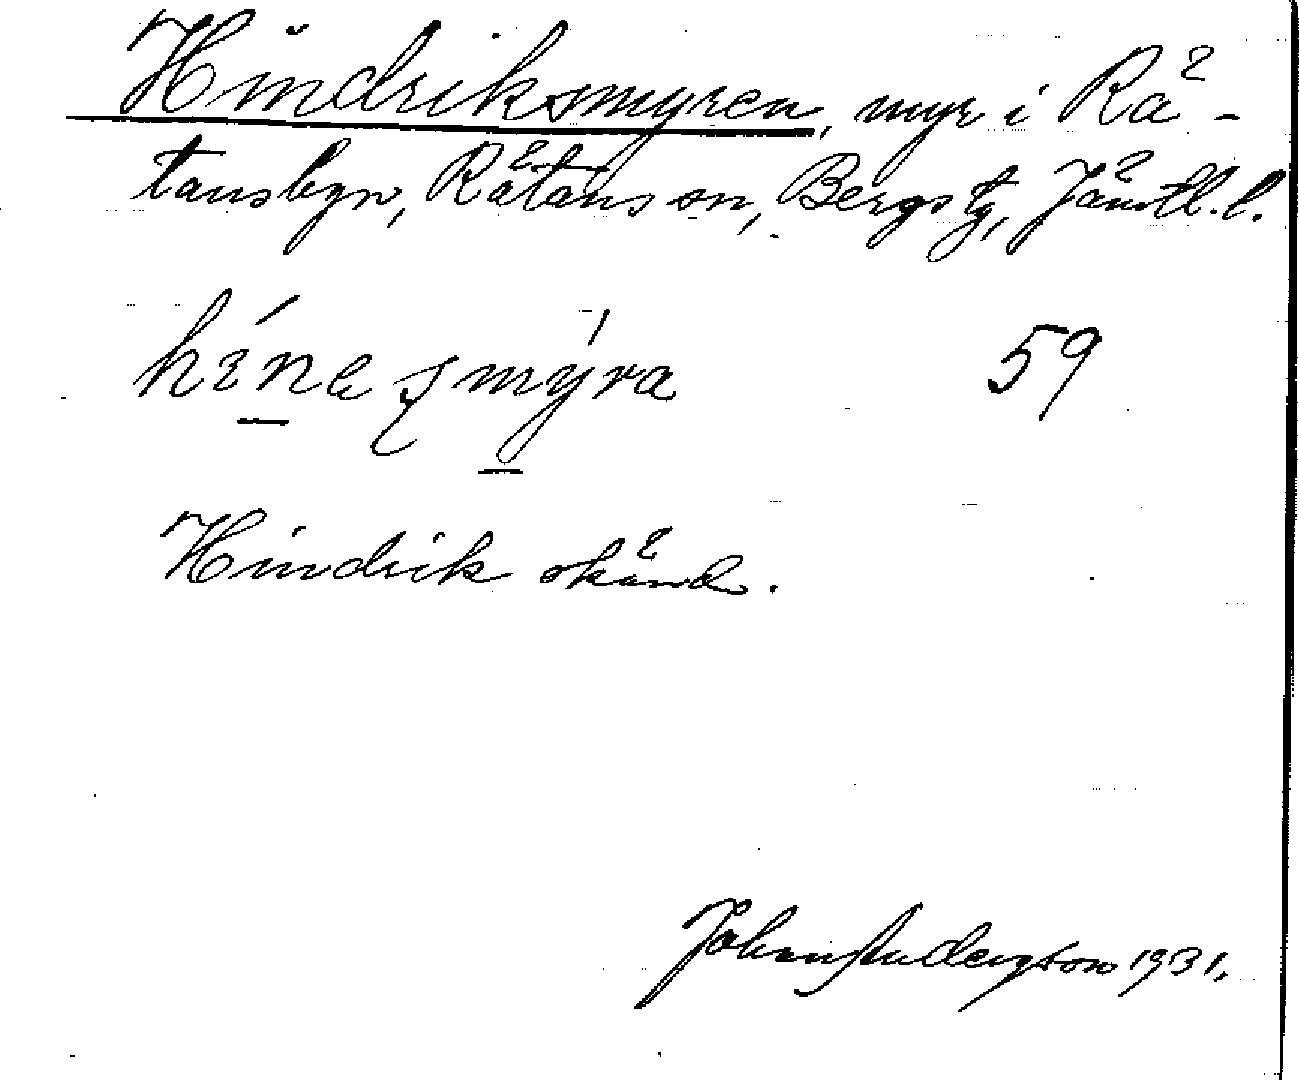 Hindriksmyren, myr i Rä-
tansbyn, Rätans sn, Bergs tg, Jämtl. l.
híneʂmýra 59
Hindrik okänd.
Johan Anderson 1931.